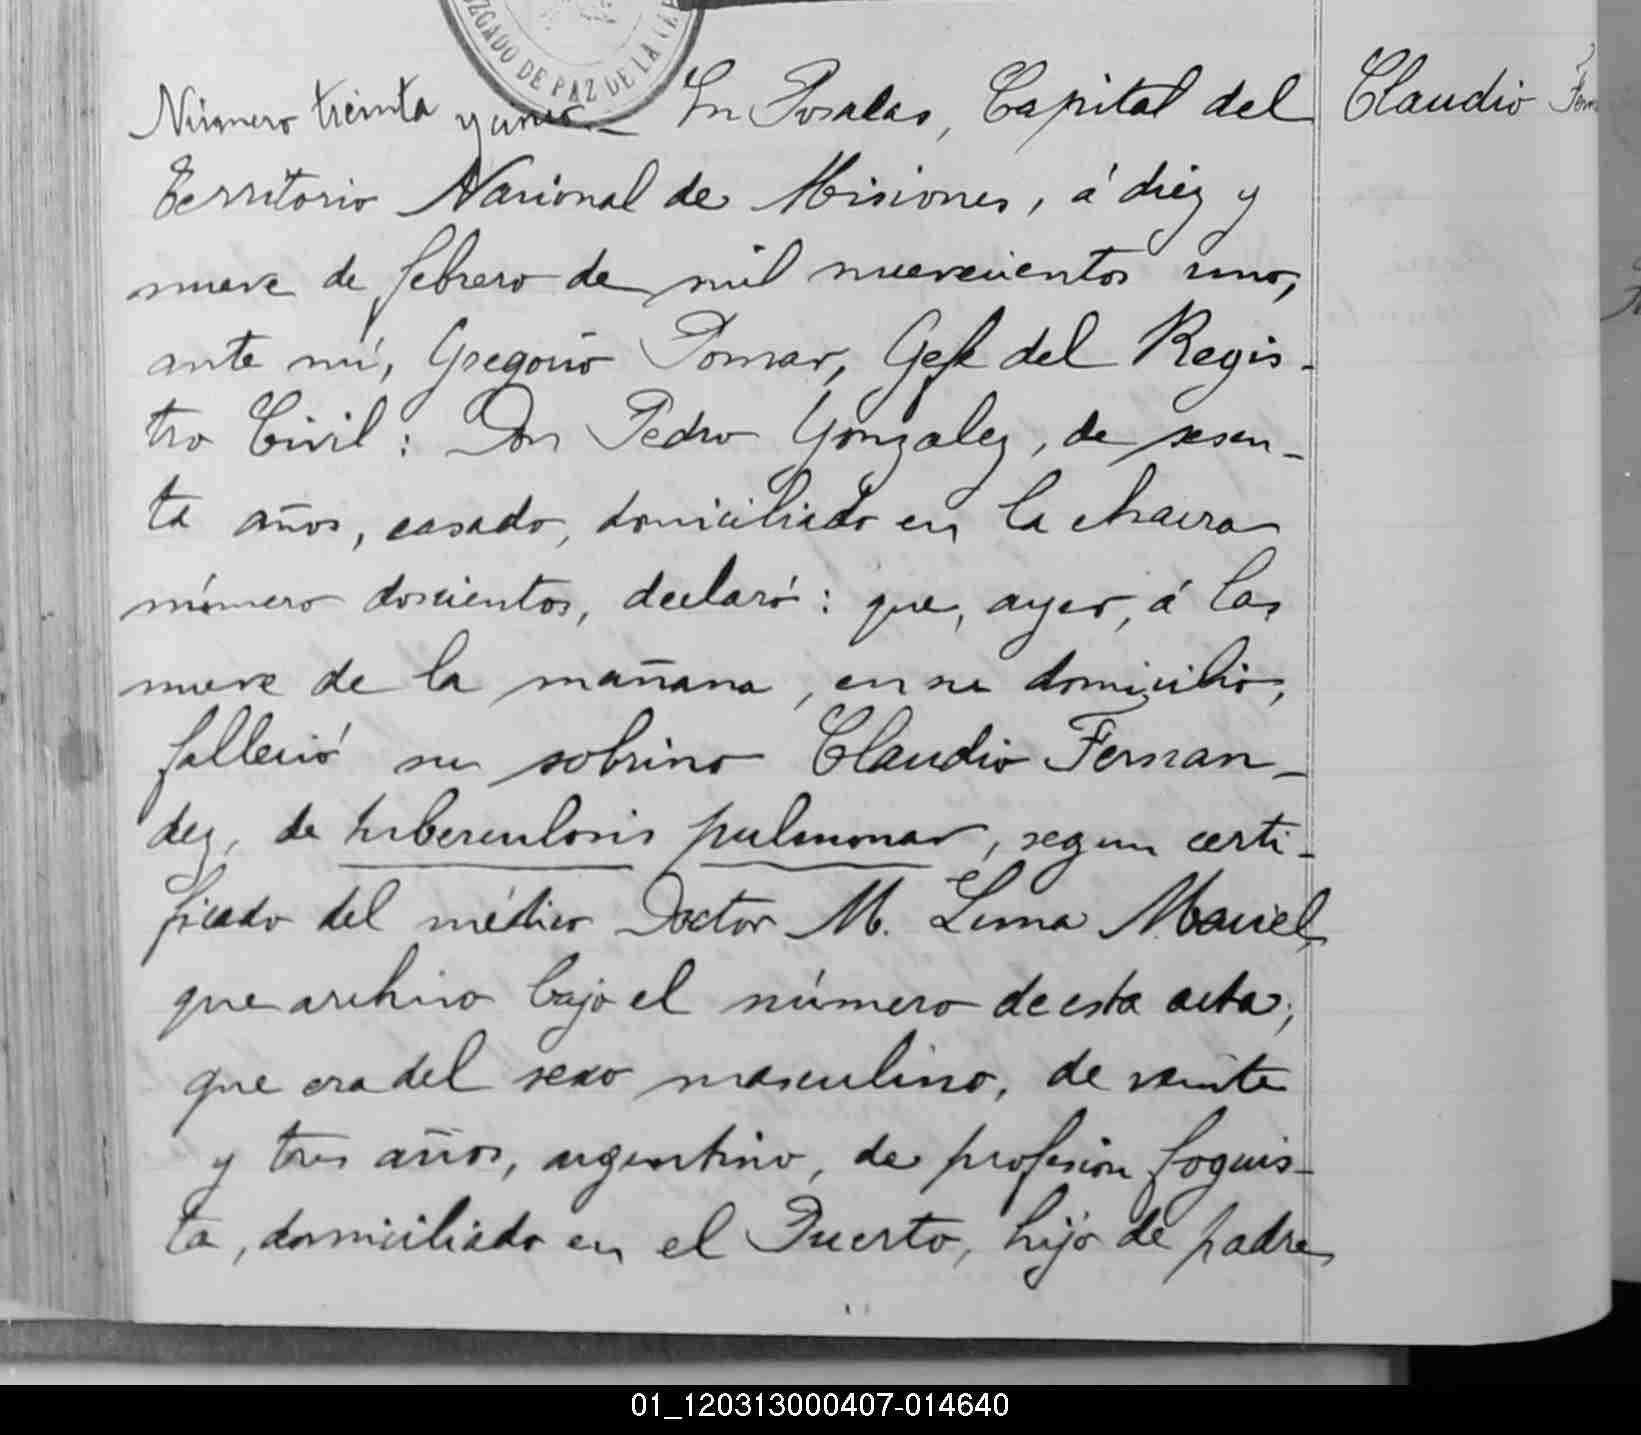 JUZGADO DE PAZ DE LA CAP
Número treinta y uno. En Posadas, Capital del
Claudio Fern
Territorio Nacional de Misiones, á diez y
nueve de febrero de mil nuevecientos uno,
ante mí, Gregorio Pomar, Gefe del Regis-
tro Civil: Don Pedro Gonzalez, de sesen-
ta años, casado, domiciliado en la chacra
número doscientos, declaró: que, ayer, á las
nueve de la mañana, en su domicilio,
falleció su sobrino Claudio Fernan-
dez, de tuberculosis pulmonar, segun certi-
ficado del médico Doctor M. Lima Maciel,
que archivo bajo el número de esta acta;
que era del sexo masculino, de veinte
y tres años, argentino, de profesion foguis-
ta, domiciliado en el Puerto, hijo de padre
01_120313000407-014640